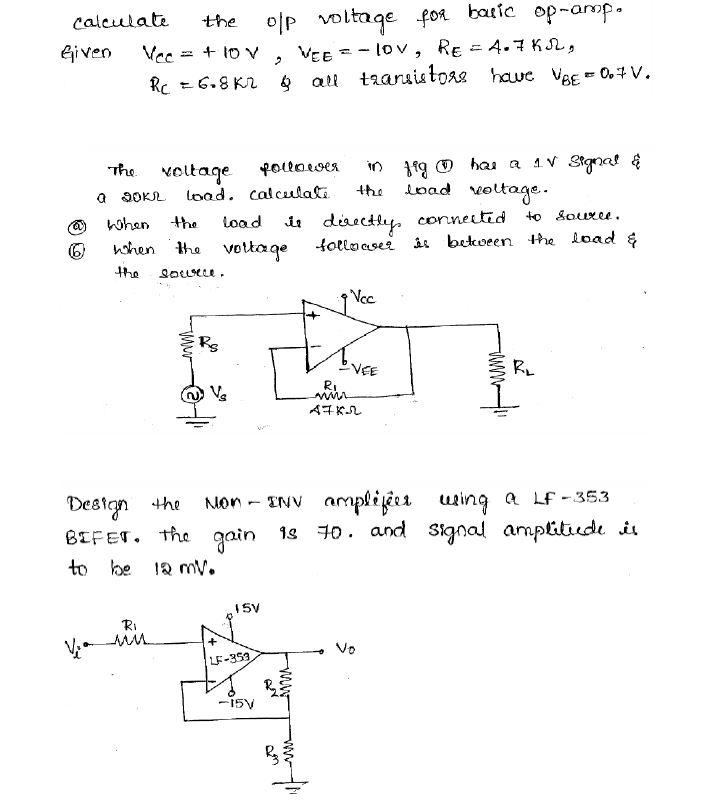 calculate the o/p voltage for basic op-amp.
Given Vcc = + 10 V , VEE = - 10 V , RE = 4.7 KΩ,
RC = 6.8 KΩ & all transistors have VBE = 0.7 V.
The voltage follower in fig ① has a 1V Signal &
a 20KΩ load. calculate the load voltage.
ⓐ When the load is directly connected to source.
ⓑ When the voltage follower is between the load &
the source.
Vcc
+
RS
-
VEE
RL
R1
Vs
47KΩ
Design the NON - INV amplifier using a LF-353
BIFET. the gain is 70. and signal amplitude is
to be 12 mV.
15V
R1
Vi
+
Vo
LF-353
-
R2
-15V
R3